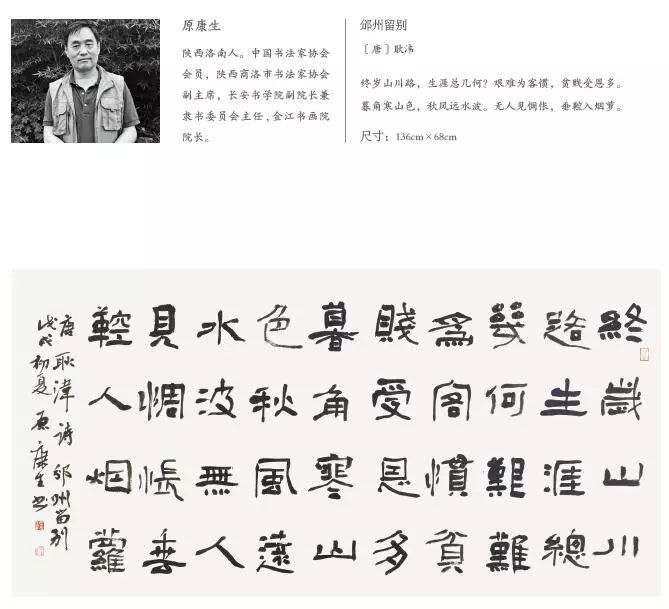 原康生
陕西洛南人。中国书法家协会
会员，陕西商洛市书法家协会
副主席，长安书学院副院长兼
隶书委员会主任，金江书画院
院长。
邠州留别
〔唐〕耿湋
终岁山川路，生涯总几何？艰难为客惯，贫贱受恩多。
暮角寒山色，秋风远水波。无人见惆怅，垂鞚入烟萝。
尺寸：136cm×68cm
終歲山川
路生涯總
幾何艱難
為客慣貧
賤受恩多
暮角寒山
色秋風遠
水波無人
見惆悵垂
鞚入烟蘿
唐耿湋詩邠州留別
戊戌初夏原康生书